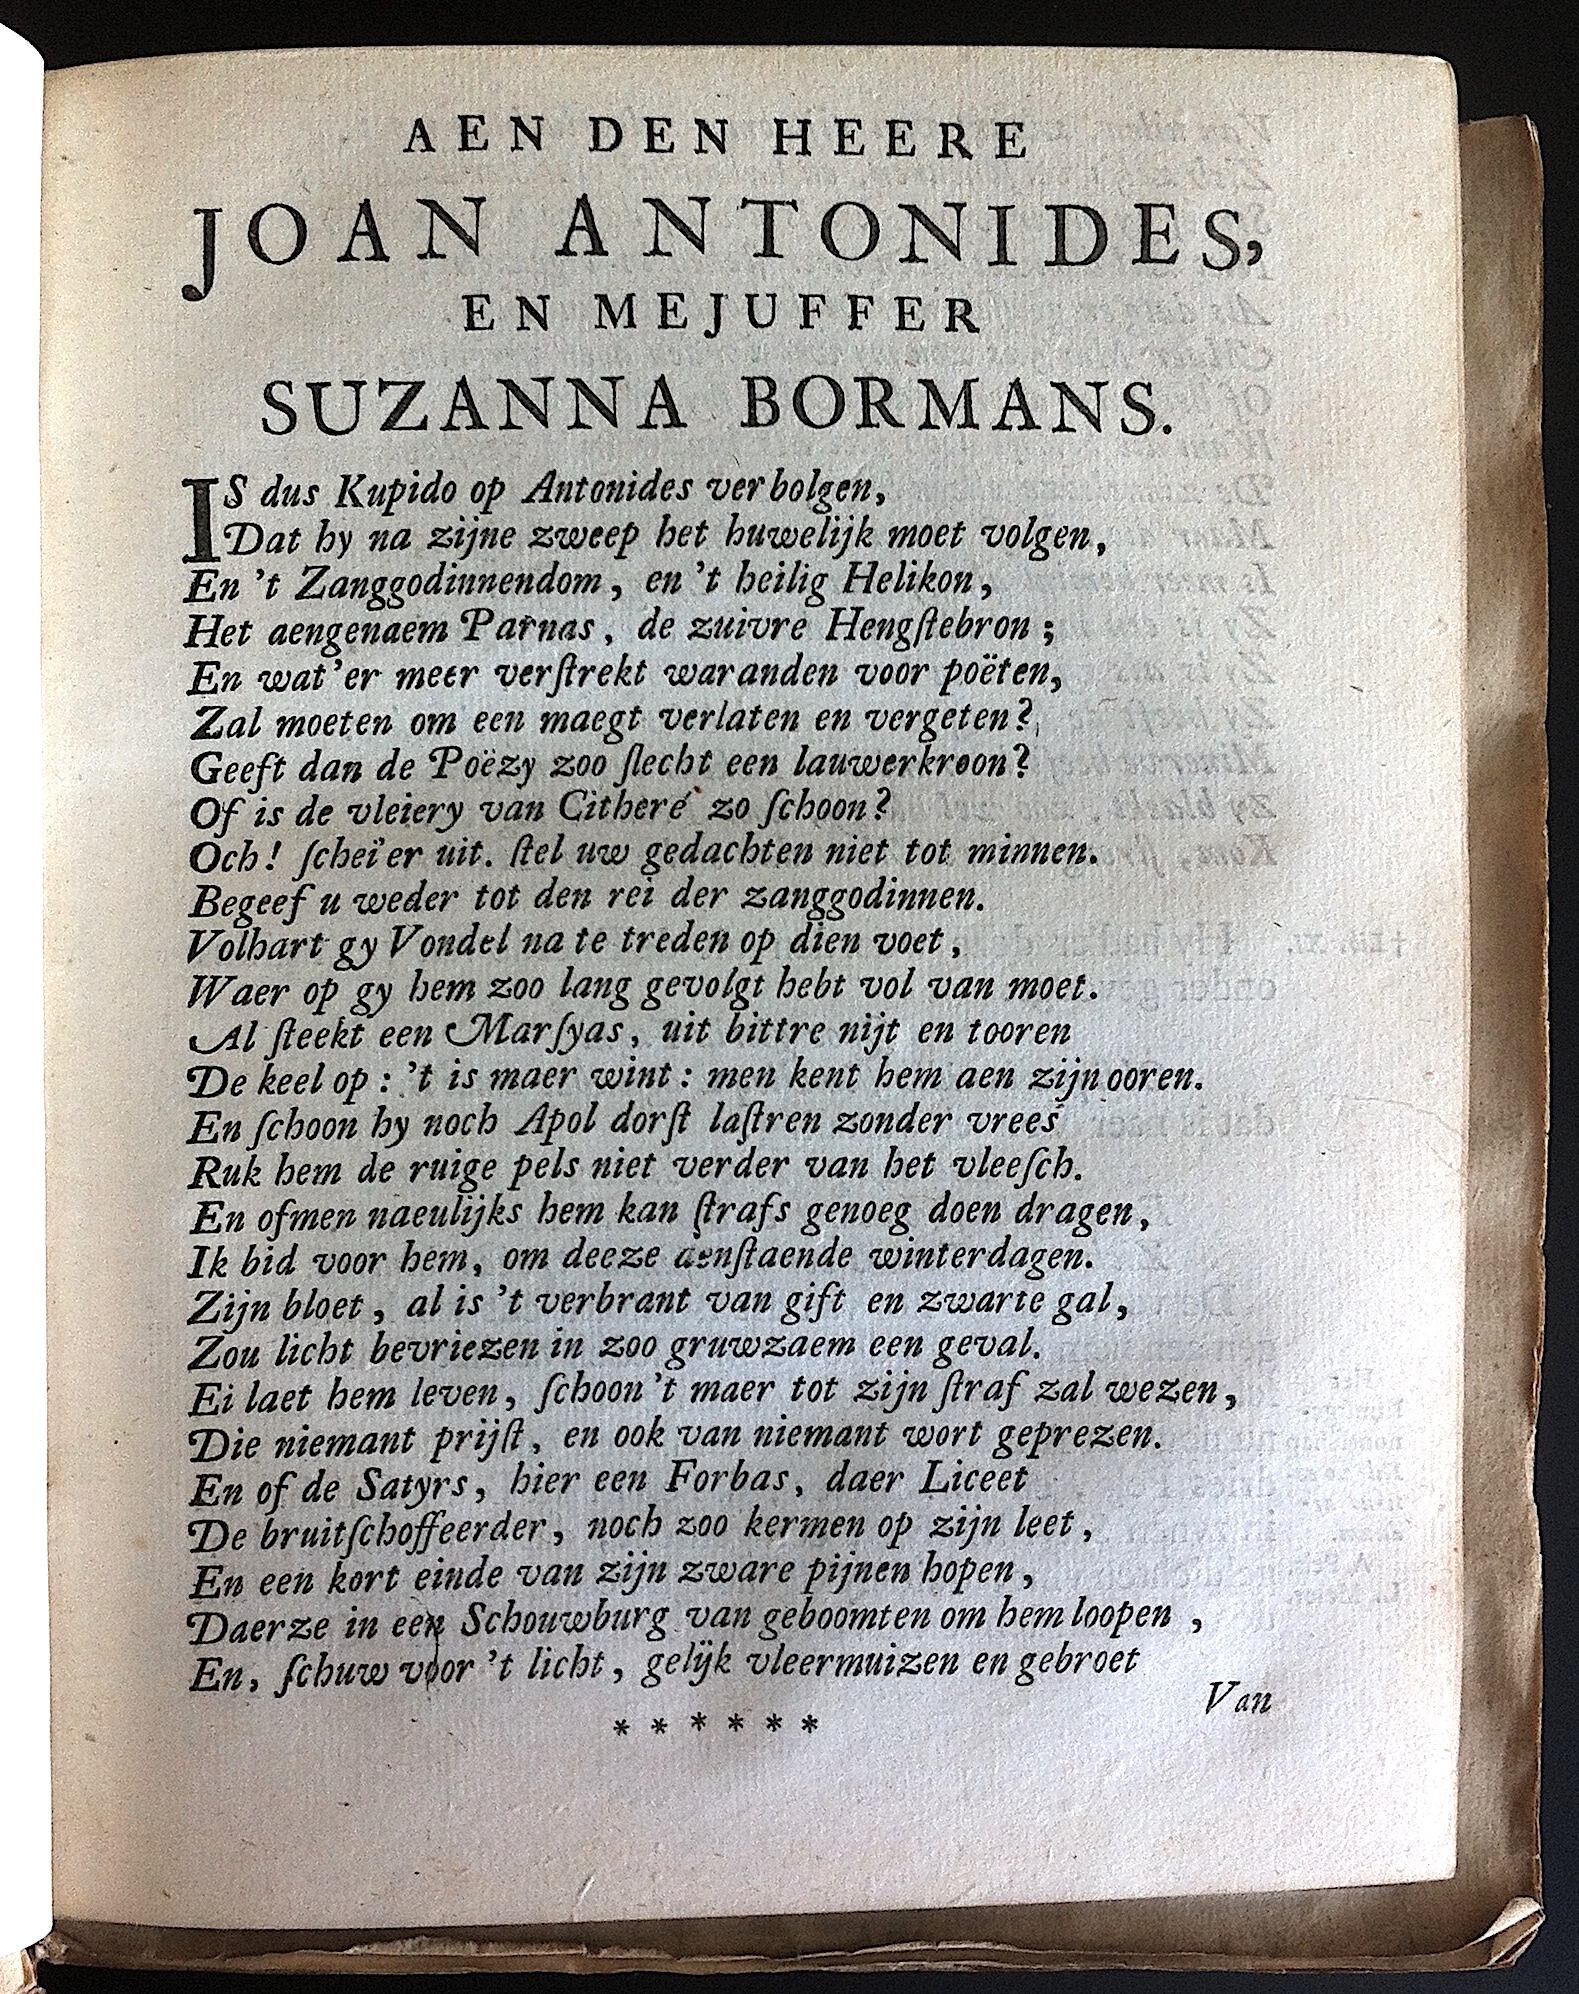 AEN DEN HEERE
JOAN ANTONIDES,
EN MEJUFFER
SUZANNA BORMANS.
IS dus Kupido op Antonides verbolgen,
Dat hy na zijne zweep het huwelijk moet volgen,
En 't Zanggodinnendom, en 't heilig Helikon,
Het aengenaem Parnas, de zuivre Hengſtebron;
En wat'er meer verſtrekt waranden voor poëten,
Zal moeten om een maegt verlaten en vergeten?
Geeft dan de Poëzy zoo ſlecht een lauwerkroon?
Of is de vleiery van Citheré zo ſchoon?
Och! ſcheï'er uit. ſtel uw gedachten niet tot minnen.
Begeef u weder tot den rei der zanggodinnen.
Volhart gy Vondel na te treden op dien voet,
Waer op gy hem zoo lang gevolgt hebt vol van moet.
Al ſteekt een Marſyas, uit bittre nijt en tooren
De keel op: 't is maer wint: men kent hem aen zijn ooren.
En ſchoon hy noch Apol dorſt laſtren zonder vrees
Ruk hem de ruige pels niet verder van het vleeſch.
En ofmen naeulijks hem kan ſtrafs genoeg doen dragen,
Ik bid voor hem, om deeze aenſtaende winterdagen.
Zijn bloet, al is 't verbrant van gift en zwarte gal,
Zou licht bevriezen in zoo gruwzaem een geval.
Ei laet hem leven, ſchoon't maer tot zijn ſtraf zal wezen,
Die niemant prijſt, en ook van niemant wort geprezen.
En of de Satyrs, hier een Forbas, daer Liceet
De bruitſchoffeerder, noch zoo kermen op zijn leet,
En een kort einde van zijn zware pijnen hopen,
Daerze in een Schouwburg van geboomten om hem loopen,
En, ſchuw voor 't licht, gelijk vleermuizen en gebroet
Van
* * * * * *